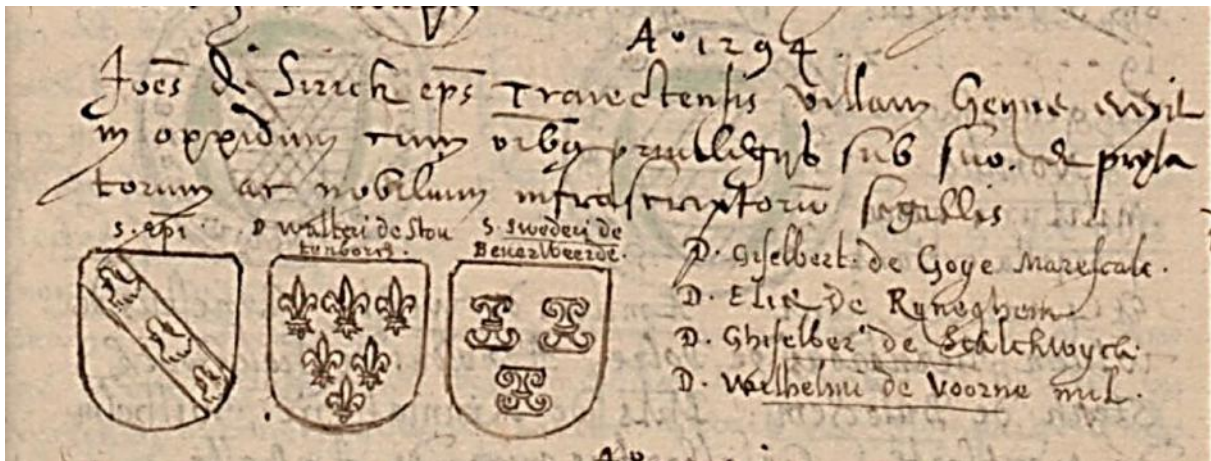 A° 1294.
Joēs de Sirick ep̄s Traiectensis villam Geyne erexit
in oppidum cum urbū priuilegijs sub suo. de prela
torum ac nobilium infrascriptorū sigillis
S. ep̄i.
D walteri de Stou
tenborch.
S. Swederi de
Beuerweerde.
D. Giselbert. de Goye Marescalc.
D. Elie de Ryneghem.
D. Ghiselber' de Scalckwyck.
D. Wilhelmi de Voorne mil.